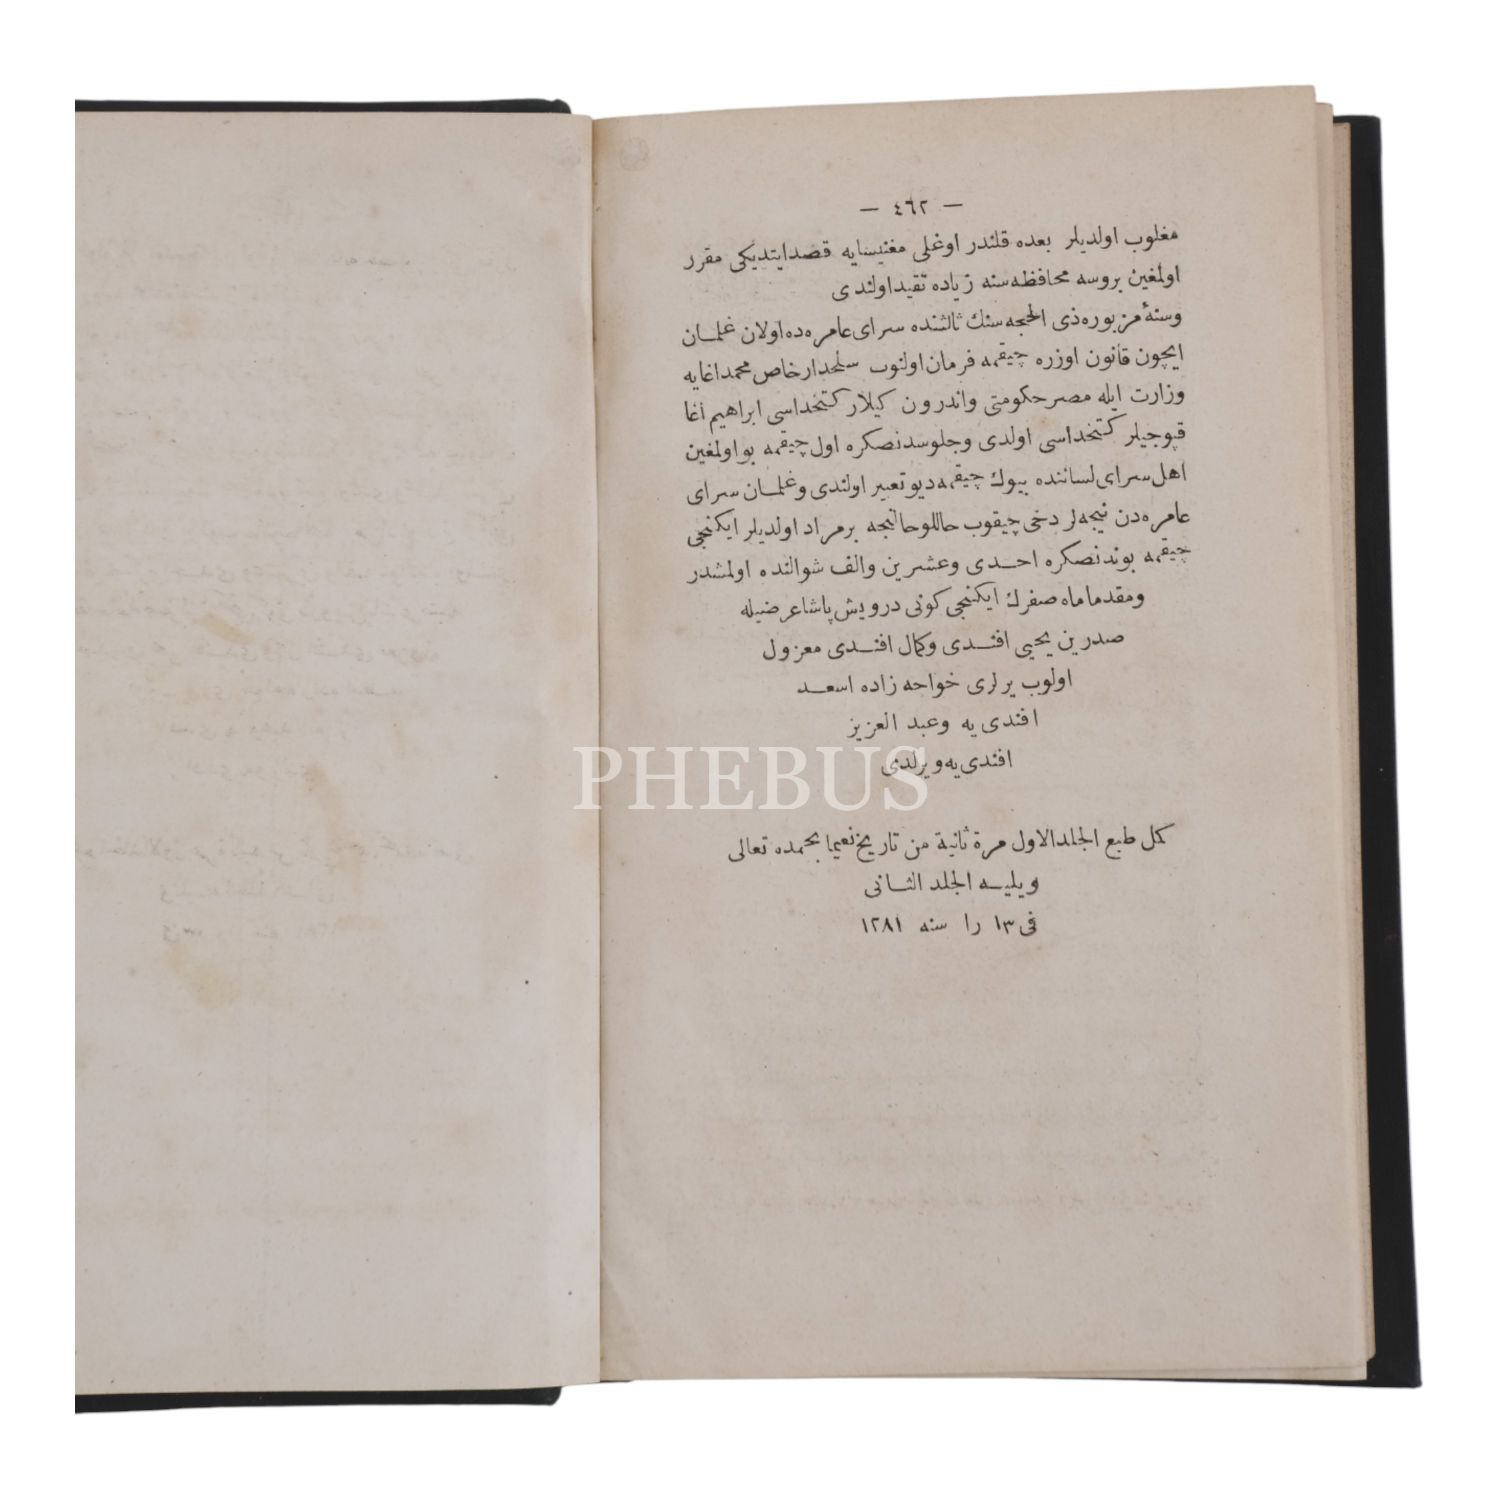 — ٤٦٢ —
مغلوب اولديلر بعده قلندر اوغلى مغنيسايه قصد ايتديكى مقرر
اولمغين بروسه محافظه سنه زياده تقيد اولندى
وسنهٔ مزبوره ذى الحجه سنك ثالثنده سراى عامره ده اولان غلمان
ايچون قانون اوزره چيقمه فرمان اولنوب سلحدار خاص محمد اغايه
وزارت ايله مصر حكومتى واندرون كيلار كتخداسى ابراهيم آغا
قپوجيلر كتخداسى اولدى وجلوسدنصكره اول چيقمه بو اولمغين
اهل سراى لساننده بيوك چيقمه ديو تعبير اولندى وغلمان سراى
عامره دن نيجه لر دخى چيقوب حاللو حالنجه بر مراد اولديلر ايكنجى
چيقمه بوندنصكره احدى وعشرين والف شوالنده اولمشدر
ومقدما ماه صفرك ايكنجى كونى درويش پاشا عرضيله
صدرين يحيى افندى وكمال افندى معزول
اولوب يرلرى خواجه زاده اسعد
افندى يه وعبد العزيز
افندى يه ويرلدى
PHEBUS
كمل طبع الجلد الاول مرة ثانية من تاريخ نعيما بحمده تعالى
ويليه الجلد الثانى
فى ١٣ را سنه ١٢٨١